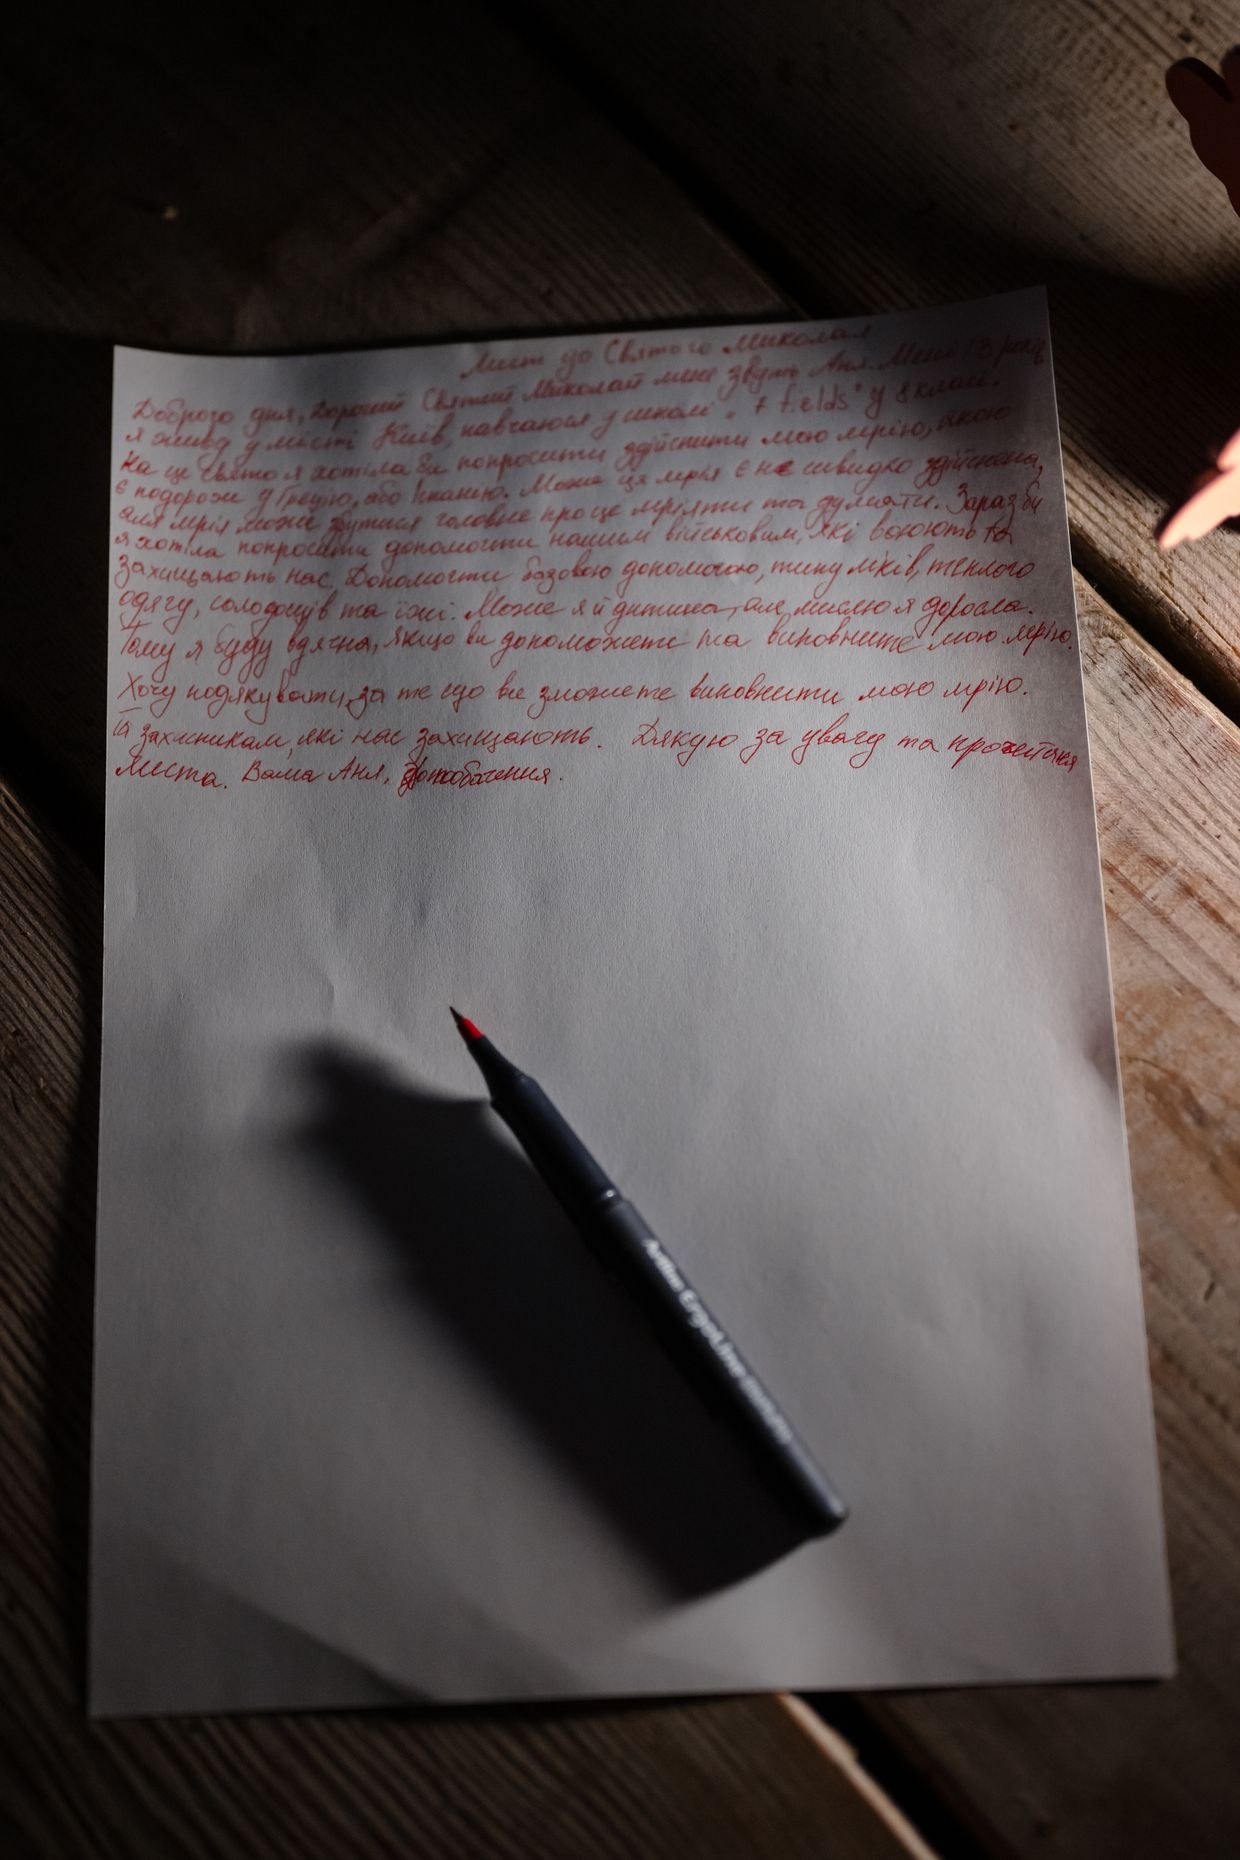 Лист до Святого Миколая
Доброго дня, Дорогий Святий Миколай мене звуть Аня. Мені 13 років
я живу у місті Київ, навчаюся у школі "7 fields" у 8 класі.
На це свято я хотіла би попросити здійснити мою мрію, якою
є подорож у Грецію, або Іспанію. Може ця мрія є не швидко здійснена,
але мрія може збутися головне про це мріяти та думати. Зараз би
я хотіла попросити допомогти нашим військовим, які воюють та
захищають нас. Допомогти базовою допомогою, типу ліків, теплого
одягу, солодощів та їжі. Може я й дитина, але мислю я доросла.
Тому я буду вдячна, якщо ви допоможете та виповните мою мрію.
Хочу подякувати, за те що ви зможете виповнити мою мрію.
Й захисникам, які нас захищають. Дякую за увагу та прочитання
листа. Ваша Аня, До побачення.
Artline ErgoLine